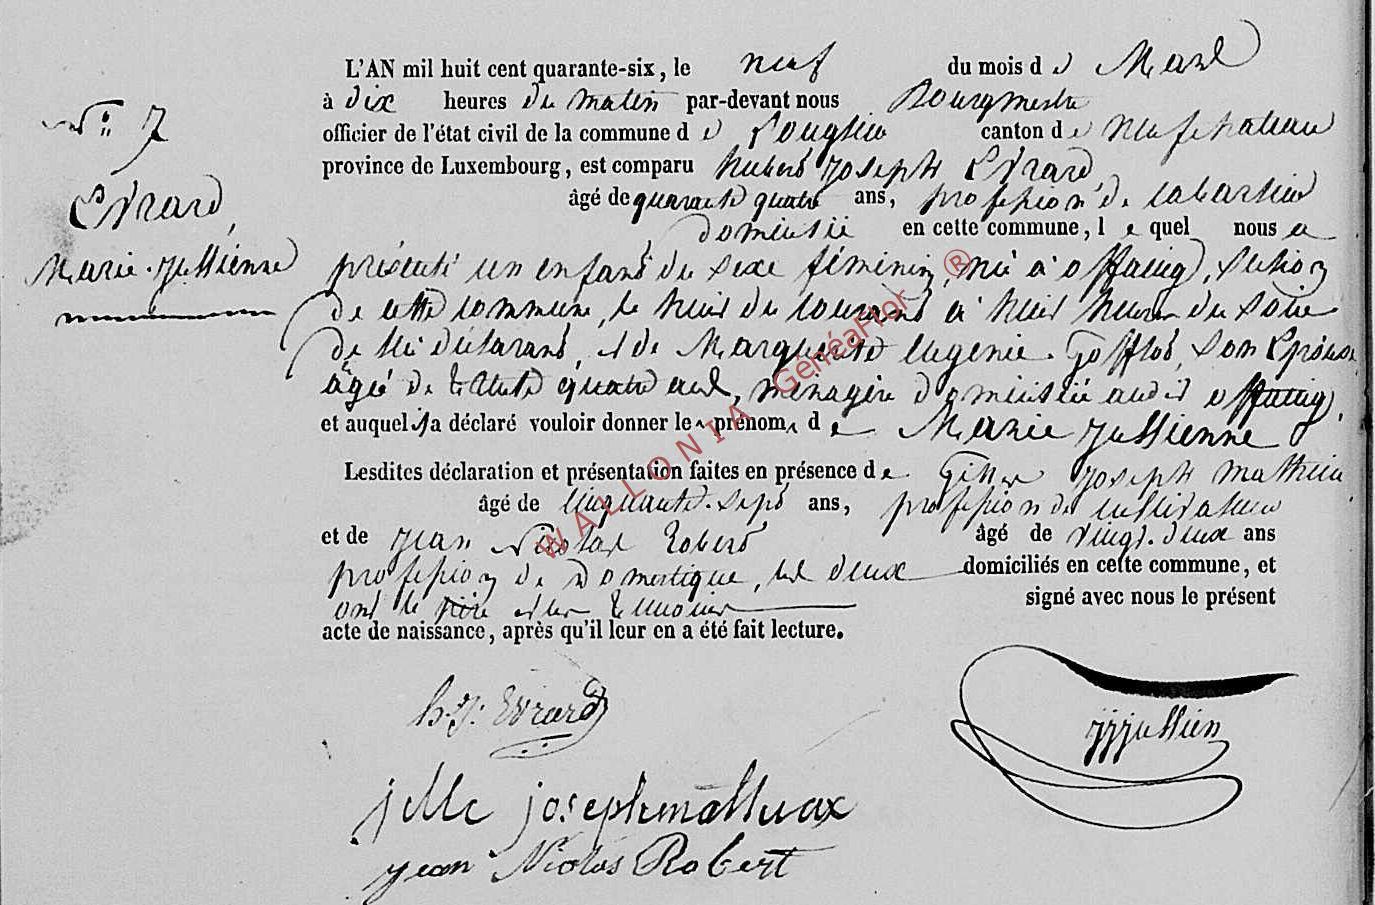 L'AN mil huit cent quarante-six, le neuf du mois d e Mars
à dix heures du matin par-devant nous Bourgmestre
N° 7
officier de l'état civil de la commune d e canton d e Neufchateau
province de Luxembourg, est comparu hubert joseph Evrard,
Evrard,
âgé de quarante quatre ans, profession de
domicilié en cette commune, l e quel nous a
Marie-jullienne
présenté un enfant du sexe féminin, née à offaing, section
de cette commune, le huit du courant à huit heures du soir
de lui déclarant, et de Marguerite Eugénie Gofflot, son Epouse
agée de trente quatre ans, ménagère domiciliée audit offaing,
et auquel il a déclaré vouloir donner les prénoms d e Marie jullienne
Lesdites déclaration et présentation faites en présence de joseph mathieu
âgé de cinquante-sept ans, profession de cultivateur
et de jean Nicolas Robert âgé de vingt-deux ans
profession de Domestique, les deux domiciliés en cette commune, et
ont le père et les témoins signé avec nous le présent
acte de naissance, après qu'il leur en a été fait lecture.
h.j. Evrard
jjjullien
joseph
jean Nicolas Robert
WALLONIA GénéaFlor ®